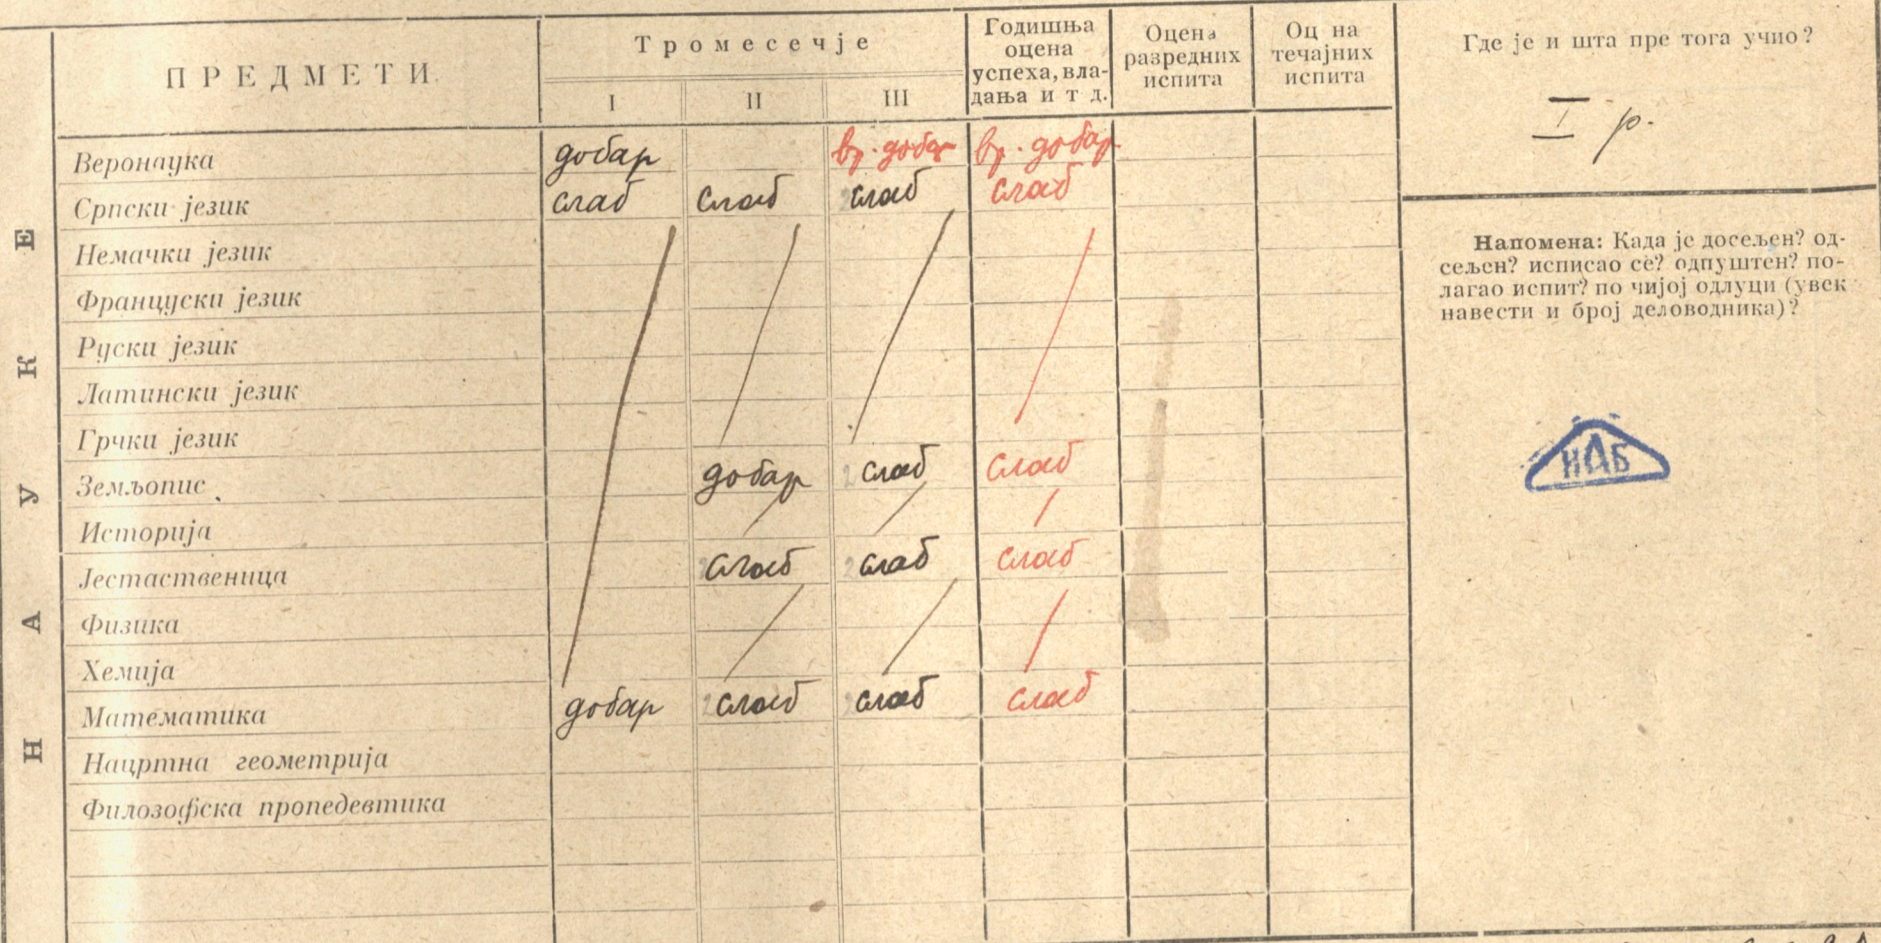 ПРЕДМЕТИ
Тромесечје
I II III
Годишња
оцена
успеха, вла-
дања и т д.
Оцена
разредних
испита
Оц на
течајних
испита
Где је и шта пре тога учио?
I р.
НАУКЕ
Веронаука добар вр. добар вр. добар
Српски језик слаб слаб слаб слаб
Немачки језик
Француски језик
Руски језик
Латински језик
Грчки језик
Земљопис добар слаб слаб
Историја
Јестаственица слаб слаб слаб
Физика
Хемија
Математика добар слаб слаб слаб
Нацртна геометрија
Филозофска пропедевтика
Напомена: Када је досељен? од-
сељен? исписао се? одпуштен? по-
лагао испит? по чијој одлуци (увек
навести и број деловодника)?
НАБ